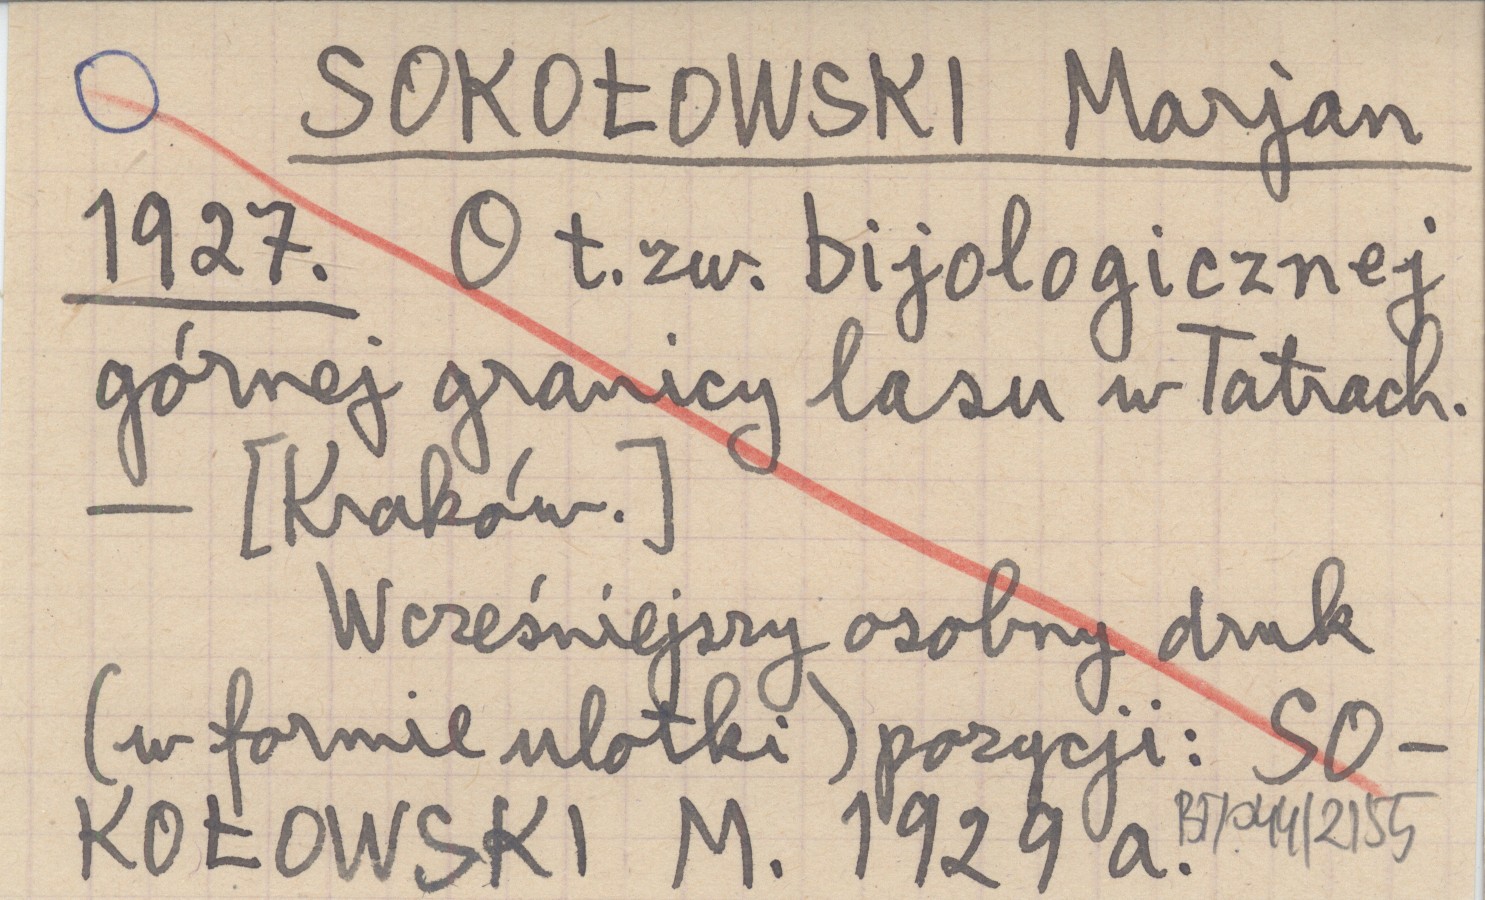 SOKOŁOWSKI Marjan
1927. O t.zw. bijologicznej
górnej granicy lasu w Tatrach.
— [Kraków.]
Wcześniejszy osobny druk
(w formie ulotki) pozycji: SO-
KOŁOWSKI M. 1929 a.